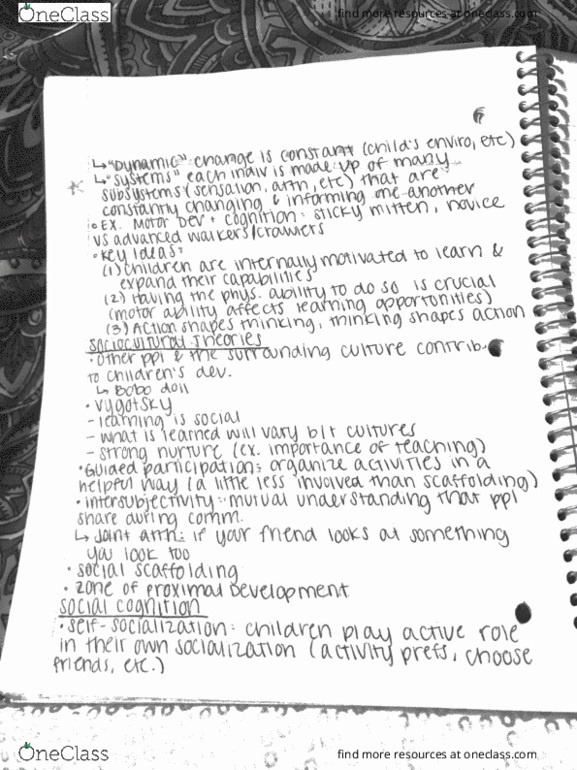 OneClass
find more resources at oneclass.com
↳"Dynamic": change is constant (child's enviro, etc)
↳"systems" each indiv is made up of many
subsystems (sensation, attn, etc) that are
constantly changing & informing one another
• EX. Motor Dev + cognition: sticky mitten, novice
vs advanced walkers/crawlers
• Key Ideas:
(1) children are internally motivated to learn &
expand their capabilities
(2) Having the phys. ability to do so is crucial
(motor ability affects learning opportunities)
(3) Action shapes thinking, thinking shapes action
Sociocultural Theories
• Other ppl & the surrounding culture contrib.
to children's dev.
↳ Bobo doll
• Vygotsky
- learning is social
- what is learned will vary b/t cultures
- strong nurture (ex. importance of teaching)
• Guided participation: organize activities in a
helpful way (a little less involved than scaffolding)
• intersubjectivity: mutual understanding that ppl
share during comm.
↳ Joint attn: if your friend looks at something
you look too
• social scaffolding
• zone of proximal development
Social cognition
• self-socialization: children play active role
in their own socialization (activity prefs, choose
friends, etc.)
OneClass
find more resources at oneclass.com